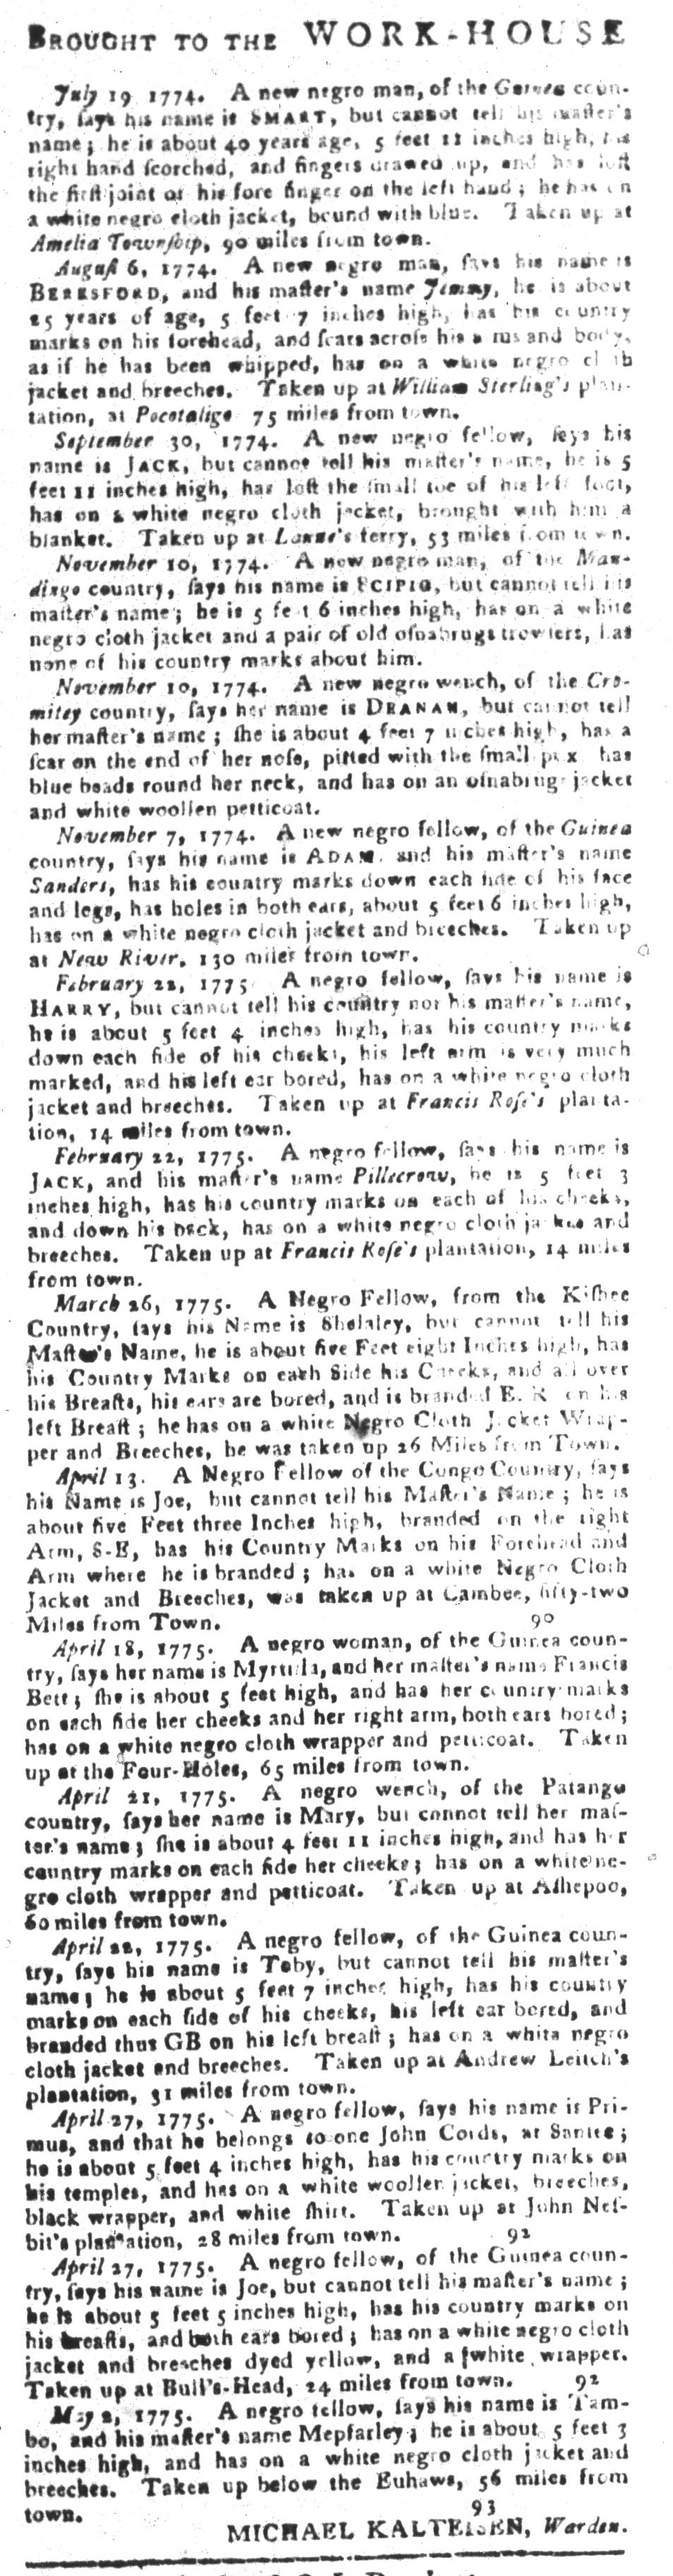 BROUGHT TO THE WORK-HOUSE
July 19 1774. A new negro man, of the Guinea coun-
try, ſays his name is SMART, but cannot tell his maſter's
name; he is about 40 years age, 5 feet 11 inches high, his
right hand ſcorched, and fingers drawed up, and has loſt
the firſt joint of his fore finger on the left hand; he has on
a white negro cloth jacket, bound with blue. Taken up at
Amelia Townſhip, 90 miles from town.
Auguſt 6, 1774. A new negro man, ſays his name is
BERESFORD, and his maſter's name Jimmy, he is about
25 years of age, 5 feet 7 inches high, has his country
marks on his forehead, and ſcars acroſs his arms and body,
as if he has been whipped, has on a white negro cloth
jacket and breeches. Taken up at William Sterling's plan-
tation, at Pocotaligo 75 miles from town.
September 30, 1774. A new negro fellow, ſays his
name is JACK, but cannot tell his maſter's name, he is 5
feet 11 inches high, has loſt the ſmall toe of his left foot,
has on a white negro cloth jacket, brought with him a
blanket. Taken up at ferry, 53 miles from town.
November 10, 1774. A new negro man, of the Man-
dingo country, ſays his name is SCIPIO, but cannot tell his
maſter's name; he is 5 feet 6 inches high, has on a white
negro cloth jacket and a pair of old oſnabrugs trowſers, has
none of his country marks about him.
November 10, 1774. A new negro wench, of the Cro-
mitey country, ſays her name is DRANAH, but cannot tell
her maſter's name; ſhe is about 4 feet 7 inches high, has a
ſcar on the end of her noſe, pitted with the ſmall pox has
blue beads round her neck, and has on an oſnabrugs jacket
and white woollen petticoat.
November 7, 1774. A new negro fellow, of the Guinea
country, ſays his name is ADAM, and his maſter's name
Sanders, has his country marks down each ſide of his face
and legs, has holes in both ears, about 5 feet 6 inches high,
has on a white negro cloth jacket and breeches. Taken up
at New River, 130 miles from town.
February 22, 1775 A negro fellow, ſays his name is
HARRY, but cannot tell his country nor his maſter's name,
he is about 5 feet 4 inches high, has his country marks
down each ſide of his cheeks, his left arm is very much
marked, and his left ear bored, has on a white negro cloth
jacket and breeches. Taken up at Francis Roſe's planta-
tion, 14 miles from town.
February 22, 1775. A negro fellow, ſays his name is
JACK, and his maſter's name Pillecrow, he is 5 feet 3
inches high, has his country marks on each of his cheeks,
and down his back, has on a white negro cloth jacket and
breeches. Taken up at Francis Roſe's plantation, 14 miles
from town.
March 26, 1775. A Negro Fellow, from the Kiſhee
Country, ſays his Name is Shelaley, but cannot tell his
Maſter's Name, he is about five Feet eight Inches high, has
his Country Marks on each Side his Cheeks, and all over
his Breaſts, his ears are bored, and is branded E. R on his
left Breaſt; he has on a white Negro Cloth Jacket Wrap-
per and Breeches, he was taken up 26 Miles from Town.
April 13. A Negro Fellow of the Congo Country, ſays
his Name is Joe, but cannot tell his Maſter's Name; he is
about five Feet three Inches high, branded on the right
Arm, S-E, has his Country Marks on his Forehead and
Arm where he is branded; has on a white Negro Cloth
Jacket and Breeches, was taken up at Cambee, fifty-two
Miles from Town. 90
April 18, 1775. A negro woman, of the Guinea coun-
try, ſays her name is Myrtilla, and her maſter's name Francis
Bett; ſhe is about 5 feet high, and has her country marks
on each ſide her cheeks and her right arm, both ears bored;
has on a white negro cloth wrapper and petticoat. Taken
up at the Four-Holes, 65 miles from town.
April 21, 1775. A negro wench, of the Patango
country, ſays her name is Mary, but cannot tell her maſ-
ter's name; ſhe is about 4 feet 11 inches high, and has her
country marks on each ſide her cheeks; has on a white ne-
gro cloth wrapper and petticoat. Taken up at Aſhepoo,
60 miles from town.
April 22, 1775. A negro fellow, of the Guinea coun-
try, ſays his name is Toby, but cannot tell his maſter's
name; he is about 5 feet 7 inches high, has his country
marks on each ſide of his cheeks, his left ear bored, and
branded thus GB on his left breaſt; has on a white negro
cloth jacket and breeches. Taken up at Andrew Leitch's
plantation, 31 miles from town.
April 27, 1775. A negro fellow, ſays his name is Pri-
mus, and that he belongs to one John Cords, at Santee;
he is about 5 feet 4 inches high, has his country marks on
his temples, and has on a white woollen jacket, breeches,
black wrapper, and white ſhirt. Taken up at John Neſ-
bit's plantation, 28 miles from town. 92
April 27, 1775. A negro fellow, of the Guinea coun-
try, ſays his name is Joe, but cannot tell his maſter's name;
he is about 5 feet 5 inches high, has his country marks on
his breaſts, and both ears bored; has on a white negro cloth
jacket and breeches dyed yellow, and a white wrapper.
Taken up at Bull's-Head, 24 miles from town. 92
May 2, 1775. A negro fellow, ſays his name is Tam-
bo, and his maſter's name Mepfarley; he is about 5 feet 3
inches high, and has on a white negro cloth jacket and
breeches. Taken up below the Euhaws, 56 miles from
town. 93
MICHAEL KALTEISEN, Warden.